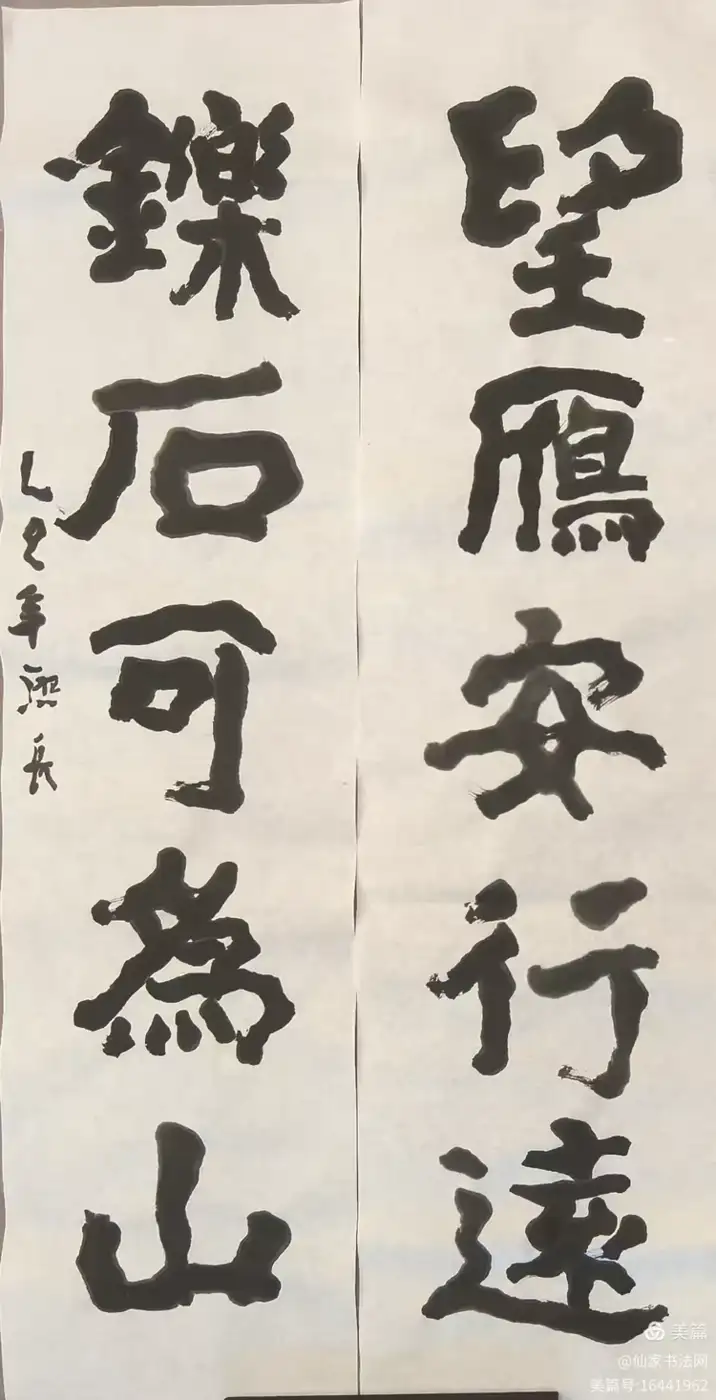 望雁安行遠
鑠石可為山
乙巳年熙長
美篇
@仙家书法网
美篇号:16441962